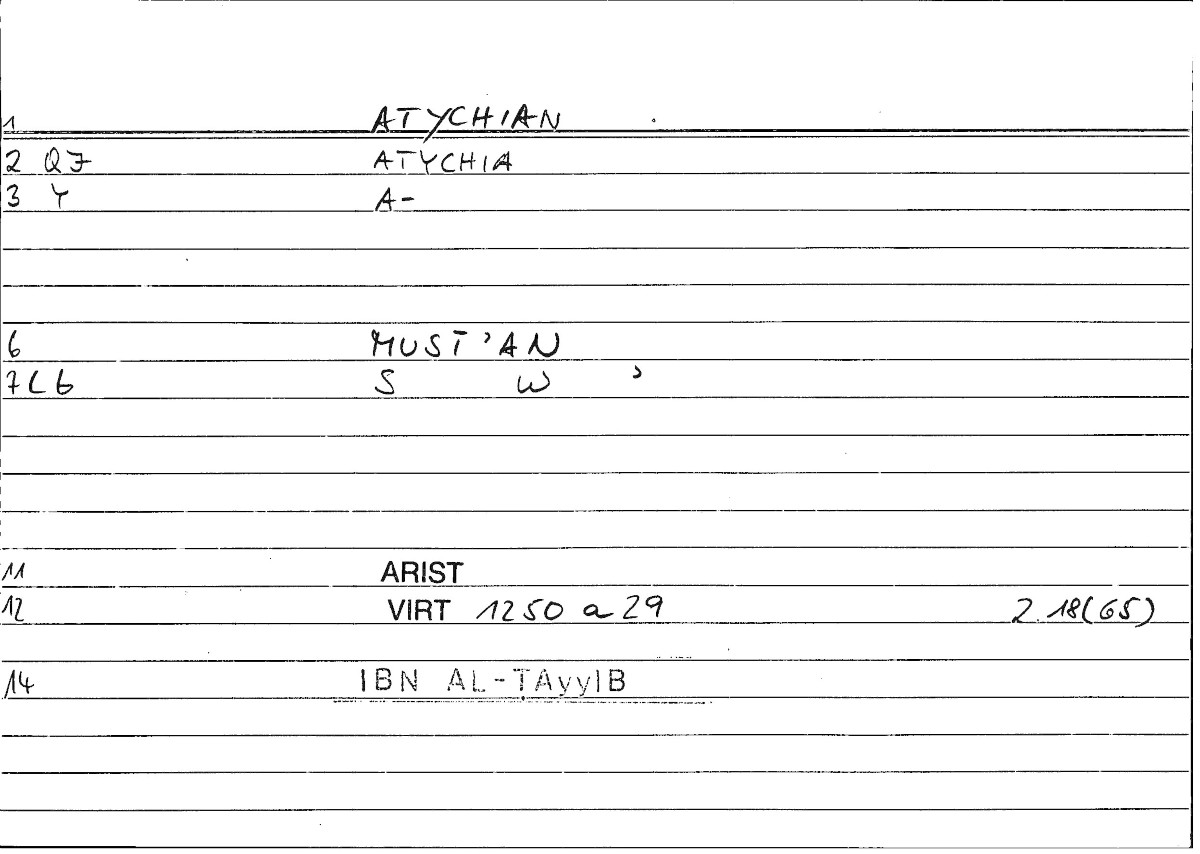 1 ATYCHIAN
2 QJ ATYCHIA
3 Y A-
6 MUST'AN
7 C 6 S W '
11 ARIST
12 VIRT 1250 a 29 2.18(65)
14 IBN AL-ṬAyyIB